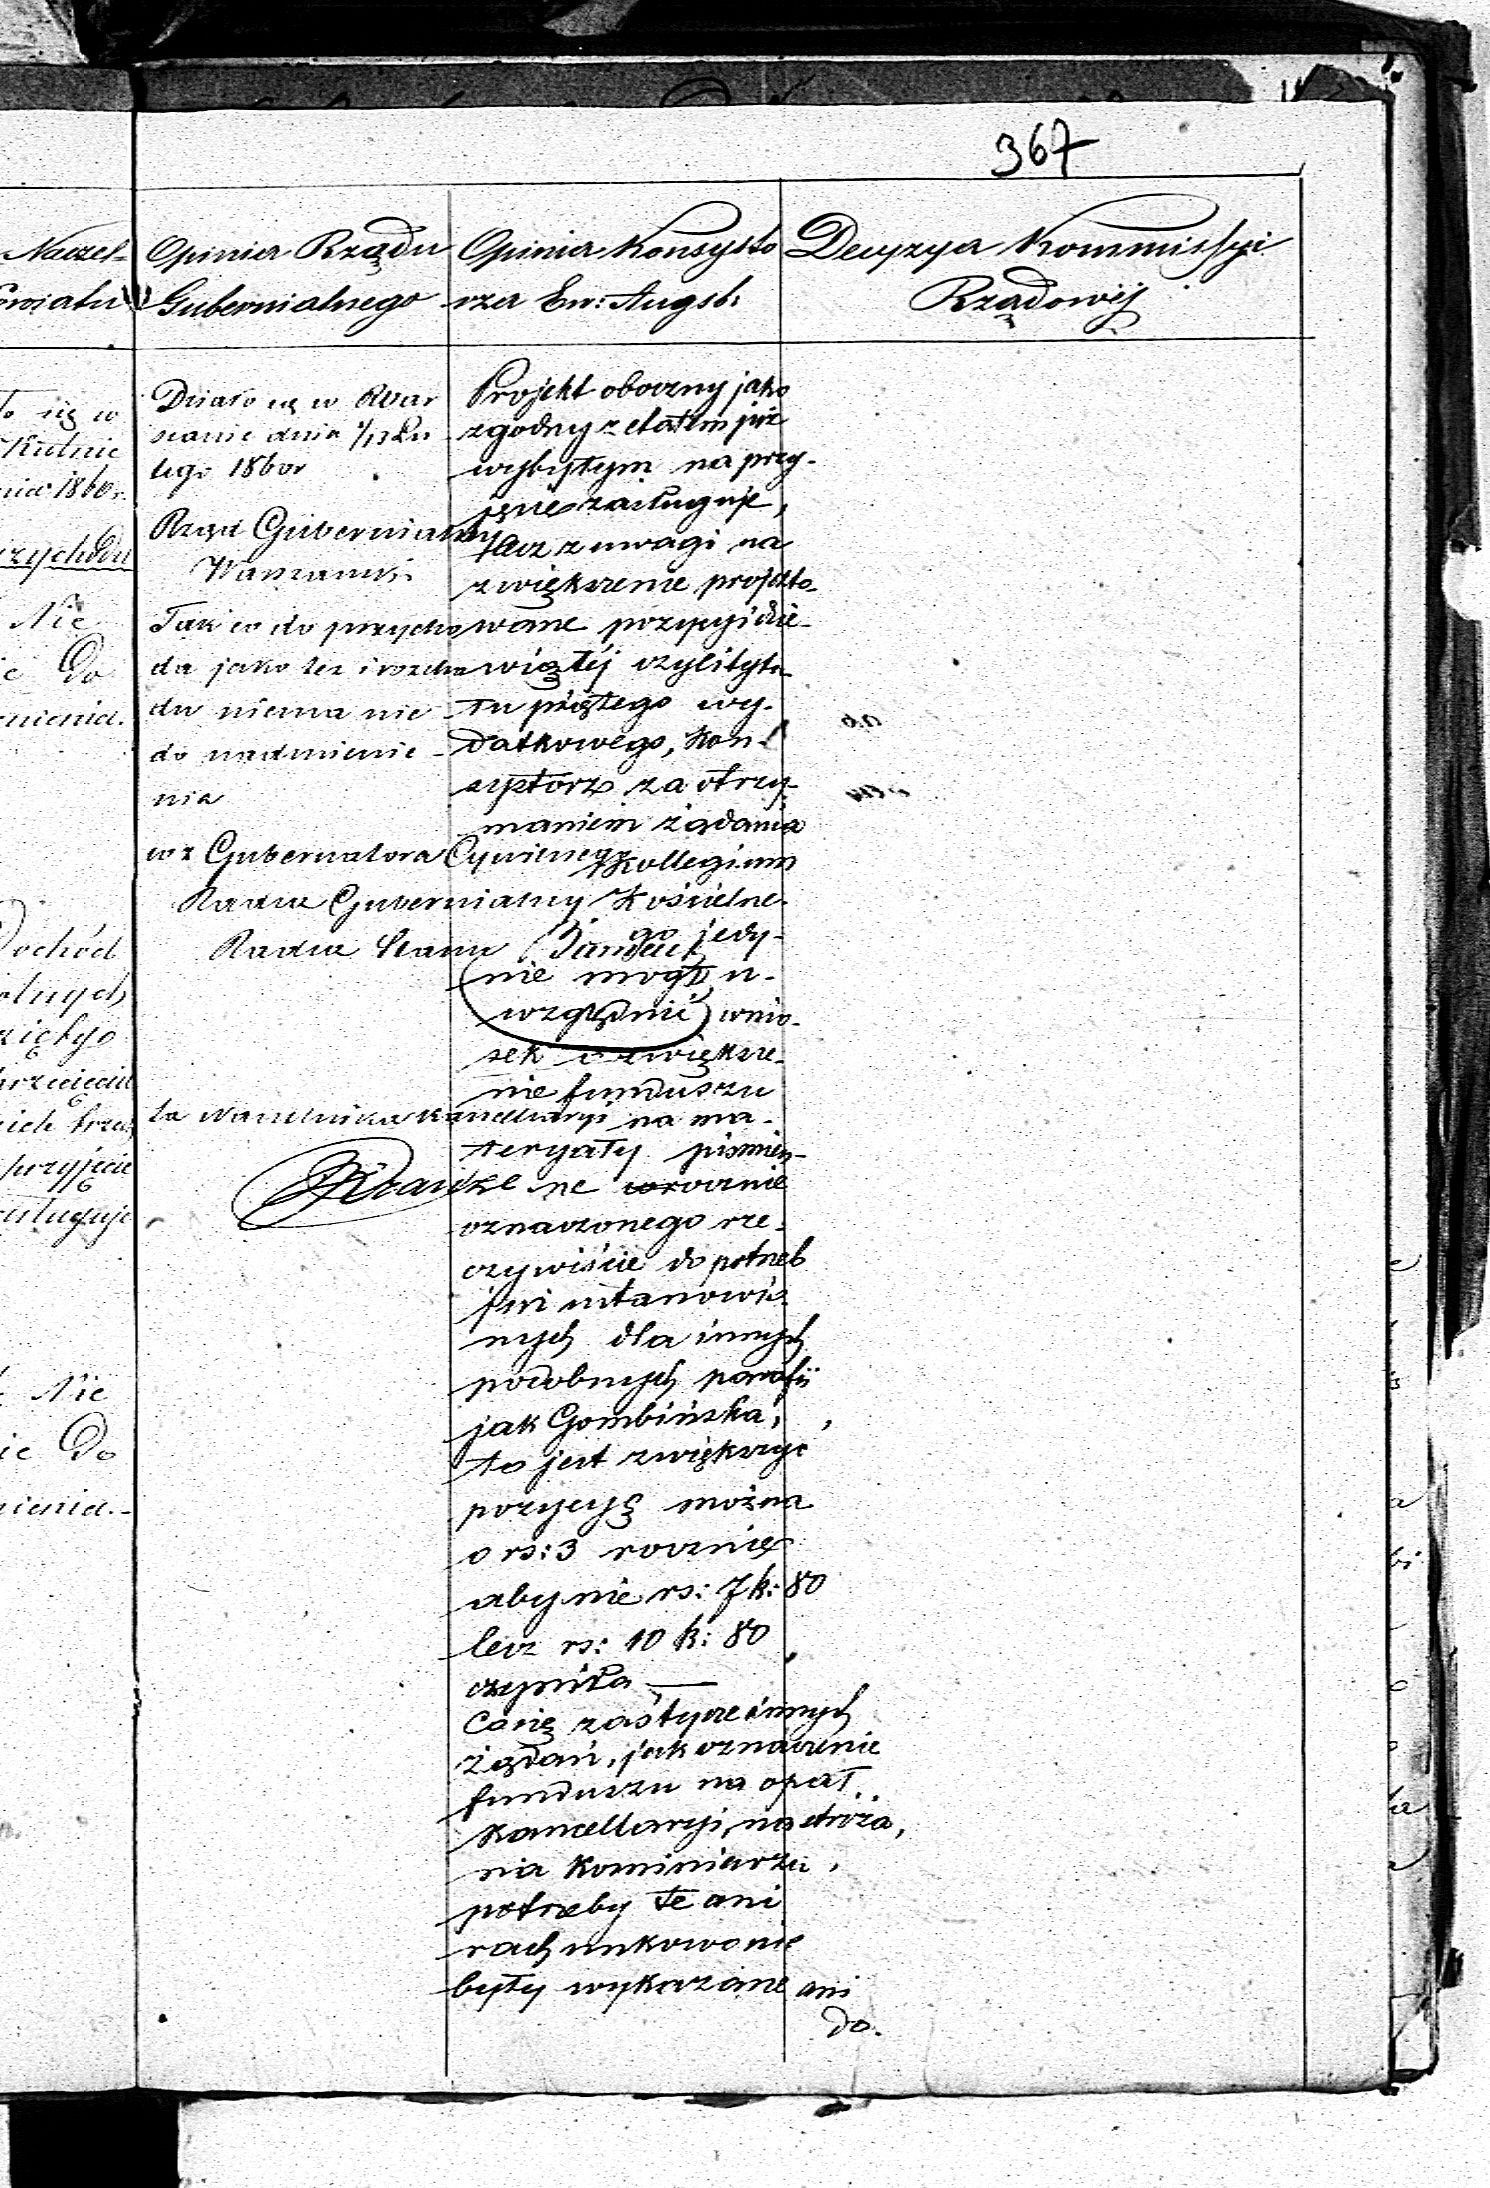 367
Naczel-
Powiatu
Opinia Rządu
Gubernialnego
Opinia Konsysto
rza Ew: Augsb:
Decyzya Kommissyi
Rządowéj
się w
Kutnie
1860r.
rzychodu
Nie
Do
mienia.
Dochód
olnych
przyjęcie
Nie
ie Do
nienia.-
Działo się w War
szawie dnia 1/13 Lu
tego 1860r
Rząd Gubernialny
Warszawski
Tak co do przycho
du jako też i rozcho
du niema nic
do nadmienie-
nia
wz Gubernatora Cywilnego
Radca Gubernialny
Radca Stanu
za Naczelnika Kancellaryi
Projekt oboczny jako
zgodny z etatem już
wybyłym na przy-
jęcie zasługuje,
lecz z uwagi na
zwiększenie projekto-
wane pozycyi dzie-
wiątéj czyli tytu-
łu piątego wy-
datkowego, Kon-
systorz za otrzy-
maniem żądania
Kollegium
Kościelne-
go jedy-
nie mógł u-
względnić wnio-
sek o zwiększe-
nie funduszu
na ma-
teryały piśmien-
ne rocznie
oznaczonego rze-
czywiście do potrzeb
ustanowio-
nych dla innych
podobnych parafii
jak Gombińska,
to jest zwiększyć
pozycyę można
o rs: 3 rocznie
aby nie rs: 7 k: 80
lecz rs: 10 k: 80
czyniła —
Co się zaś tycze innych
żądań, jak oznaczenie
funduszu na opał
Kancellaryi, na stróża,
na Kominiarza,
potrzeby te ani
rachunkowo nie
były wykazane ani
do.